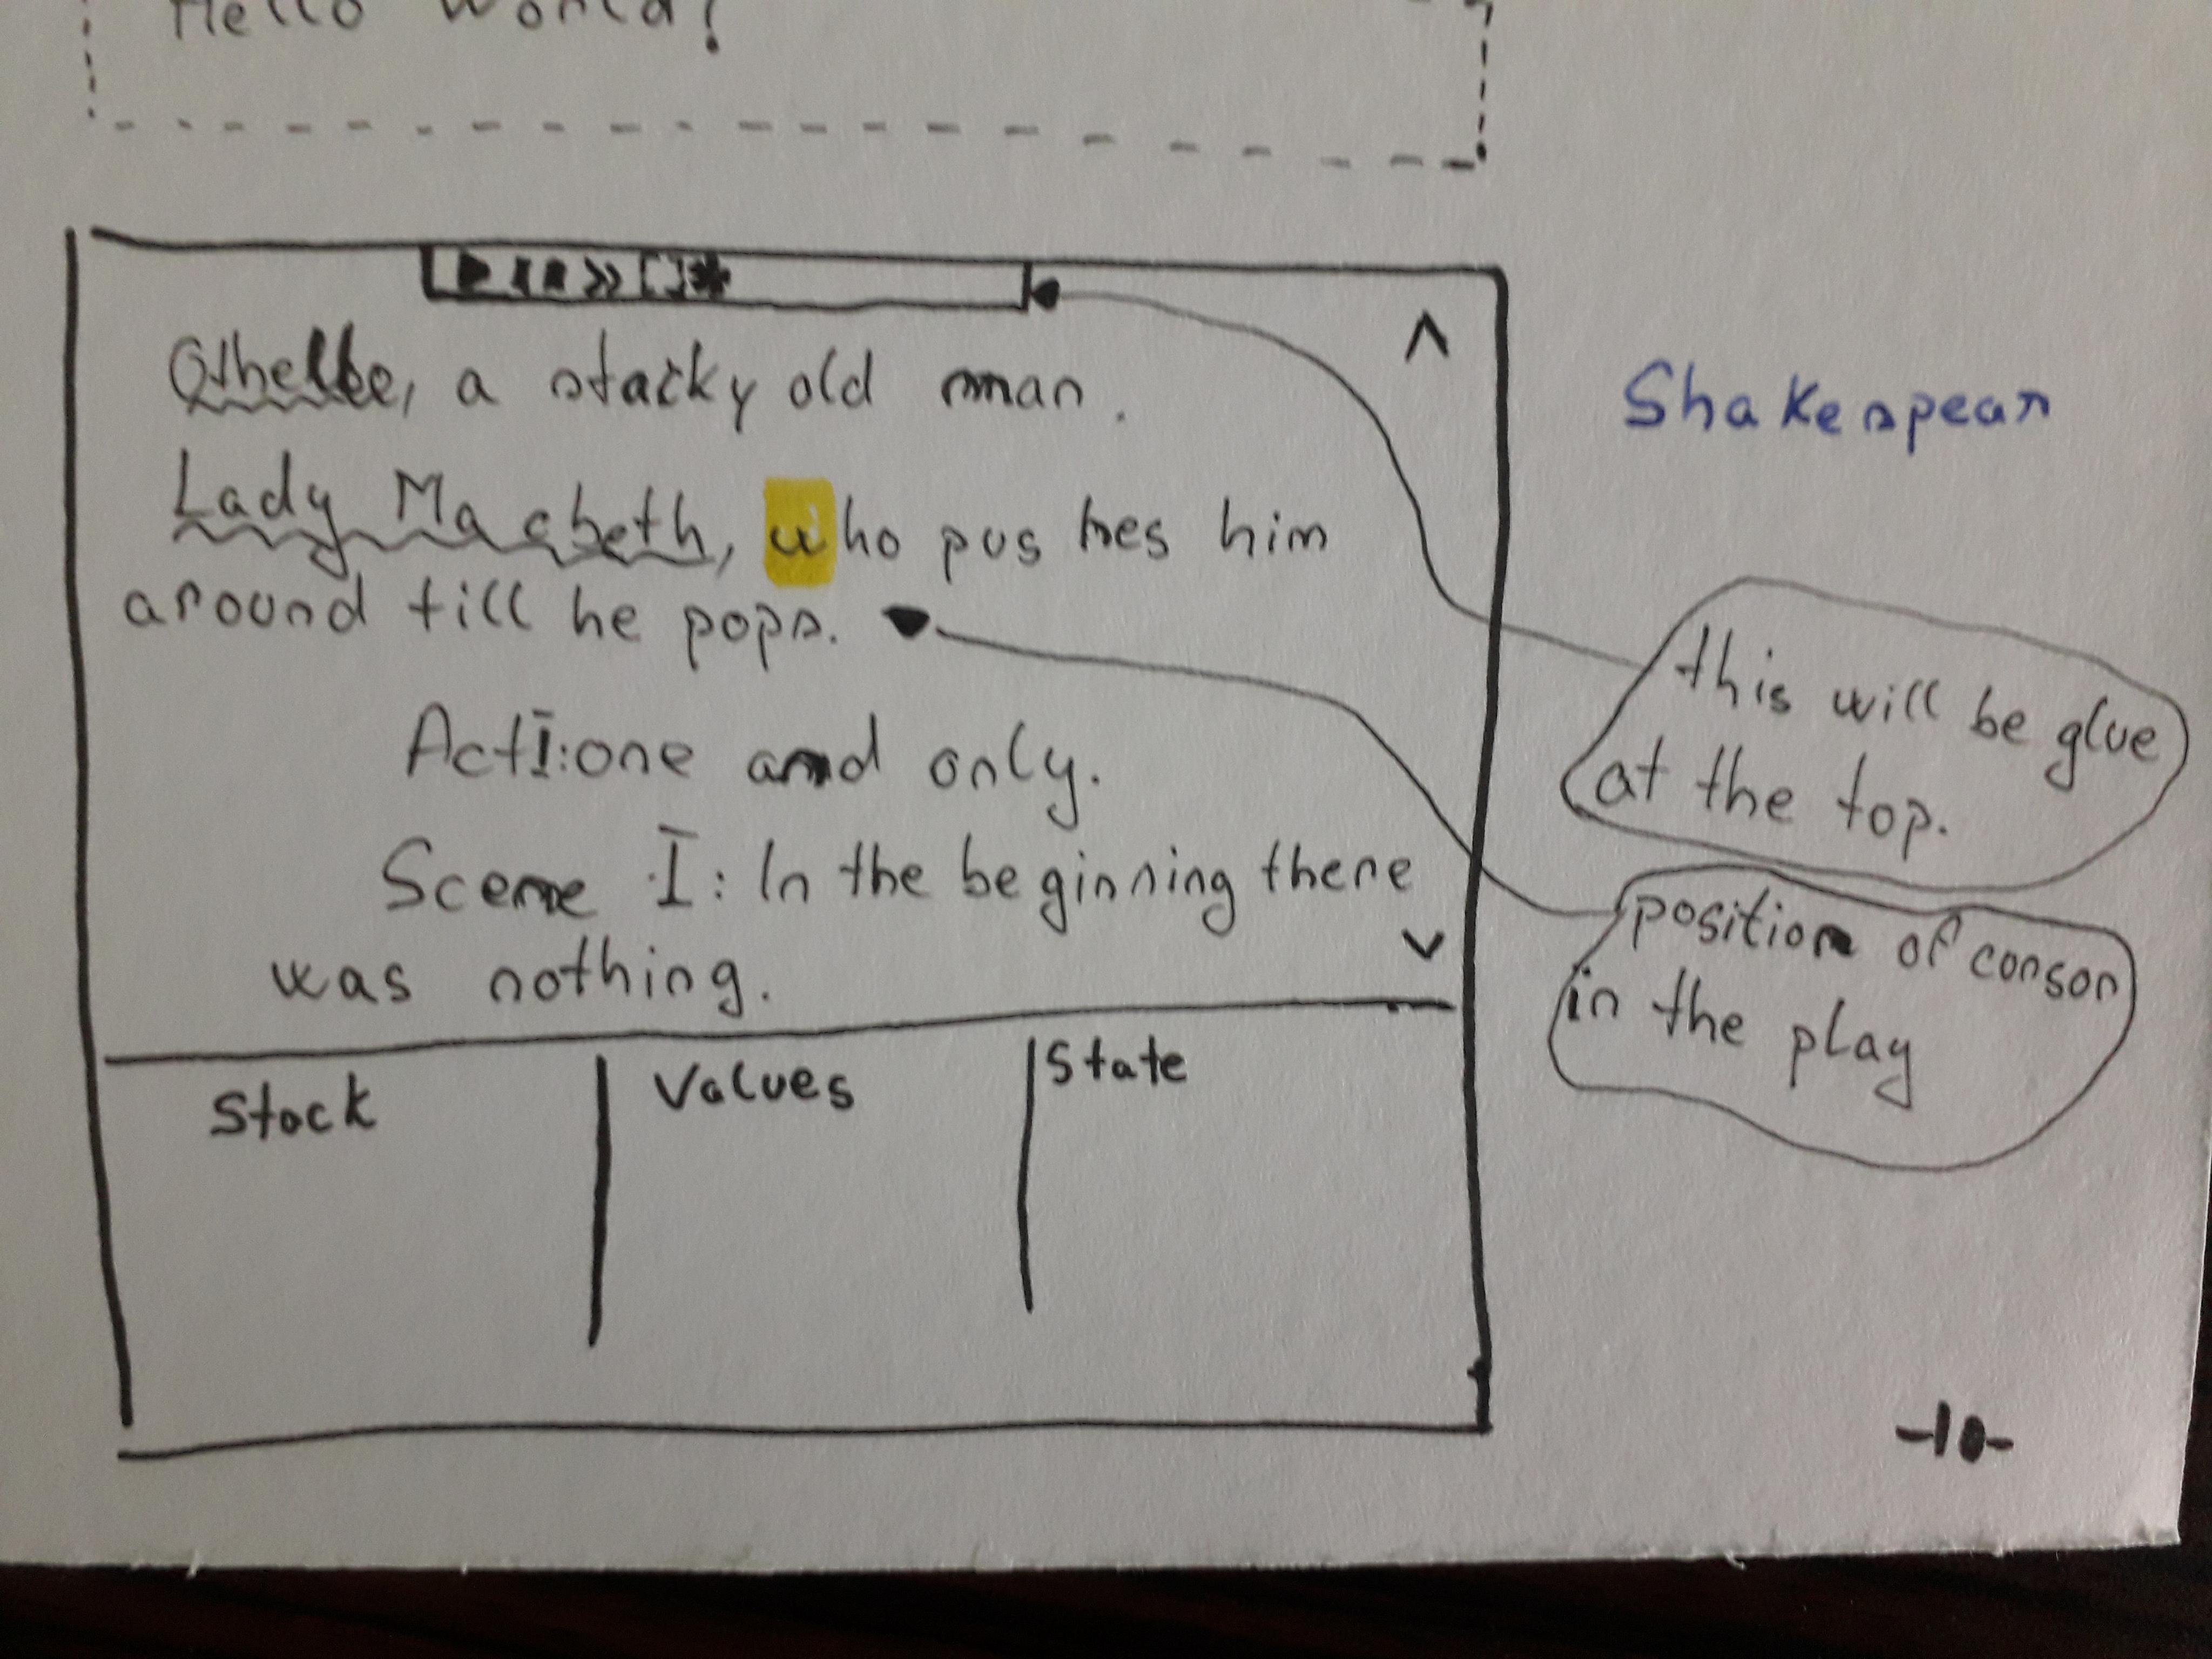 Hello World!
Othello, a stacky old man.
Lady Macbeth, who pushes him
around till he pops.
Act I: one and only.
Scene I: In the beginning there
was nothing.
Stack
Values
State
Shakespear
this will be glue
at the top.
position of conson
in the play
-10-